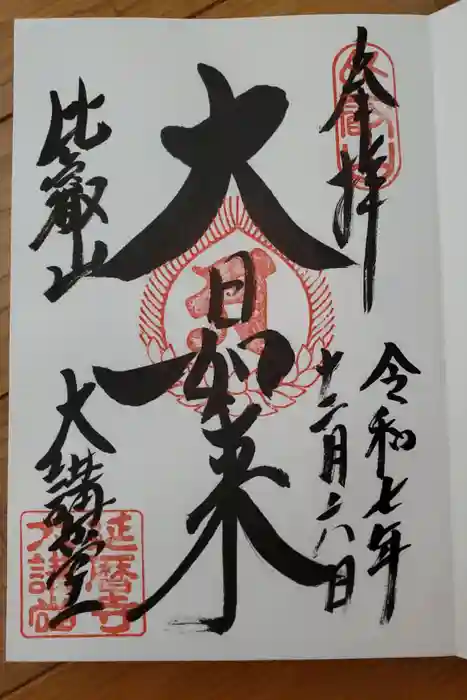 奉拝
令和七年
十二月六日
大日如来
比叡山
大講堂
比叡山
延暦寺
大講堂